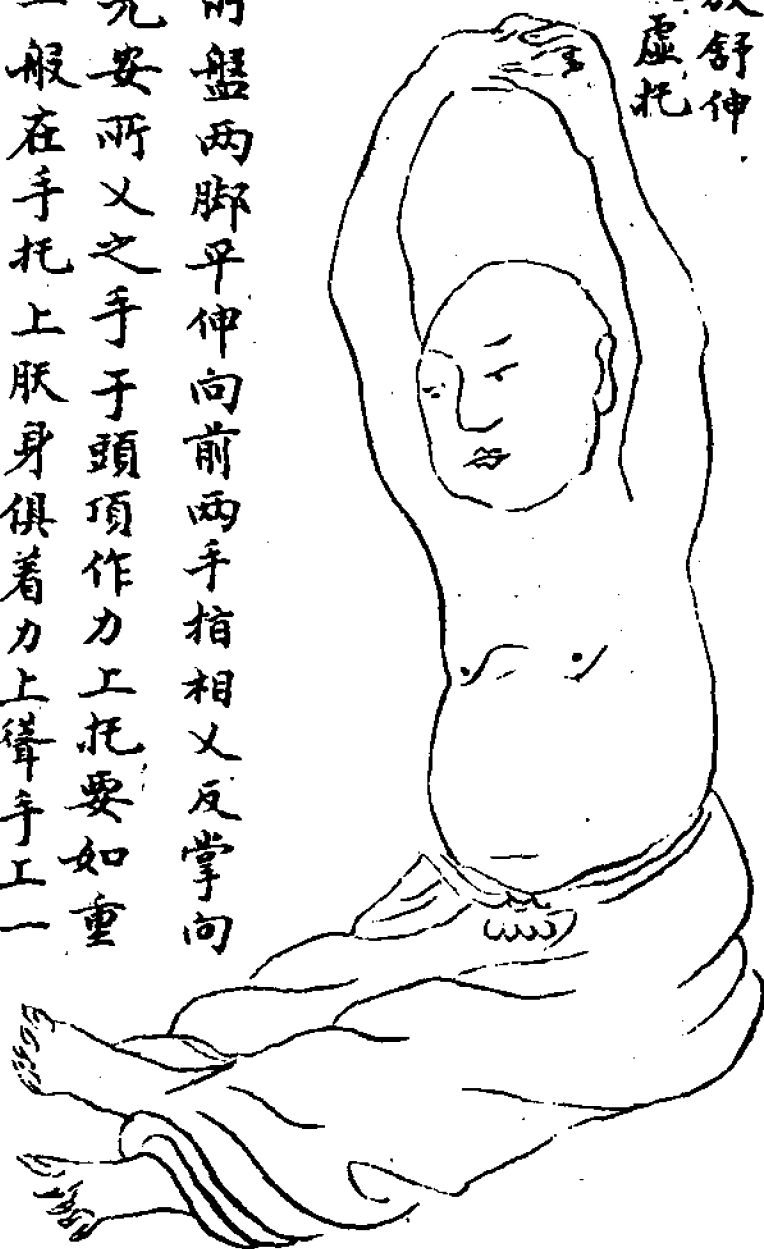 舒伸
虛托
盤两脚平伸向前两手指相乂反掌向
先安所乂之手于頭頂作力上托要如重
一般在手托上身俱着力上聳手工一